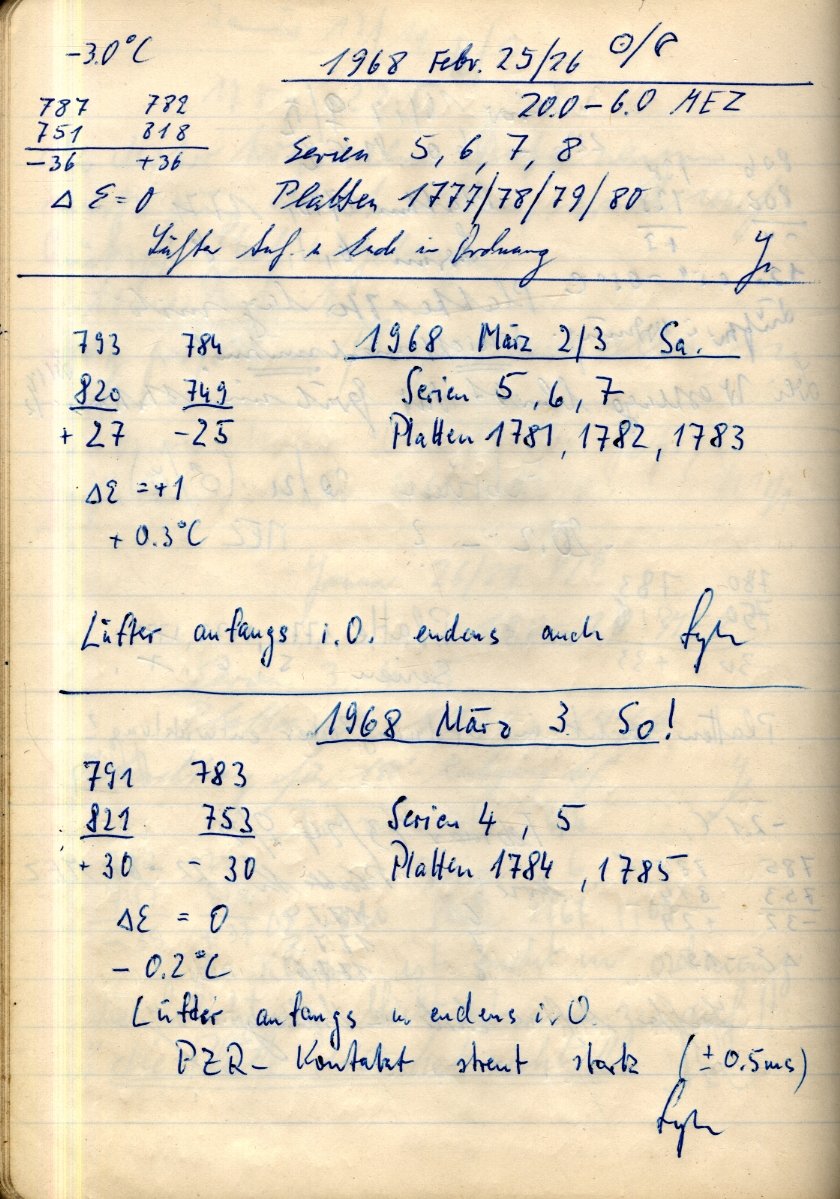 -3.0°C
1968 Febr. 25/26 ☉/8
787 782
20.0 - 6.0 MEZ
751 818
-36 +36
Serien 5, 6, 7, 8
Δ ε = 0
Platten 1777/78/79/80
Lüfter Anf. u Ende in Ordnung
793 784
1968 März 2/3 Sa.
820 749
Serien 5, 6, 7
+ 27 - 25
Platten 1781, 1782, 1783
Δε = +1
+ 0.3°C
Lüfter anfangs i.O. endens auch
1968 März 3. So!
791 783
821 753
Serien 4, 5
+ 30 - 30
Platten 1784, 1785
Δε = 0
- 0.2°C
Lüfter anfangs u endens i.O.
PZR - Kontakt streut stark (± 0.5ms)